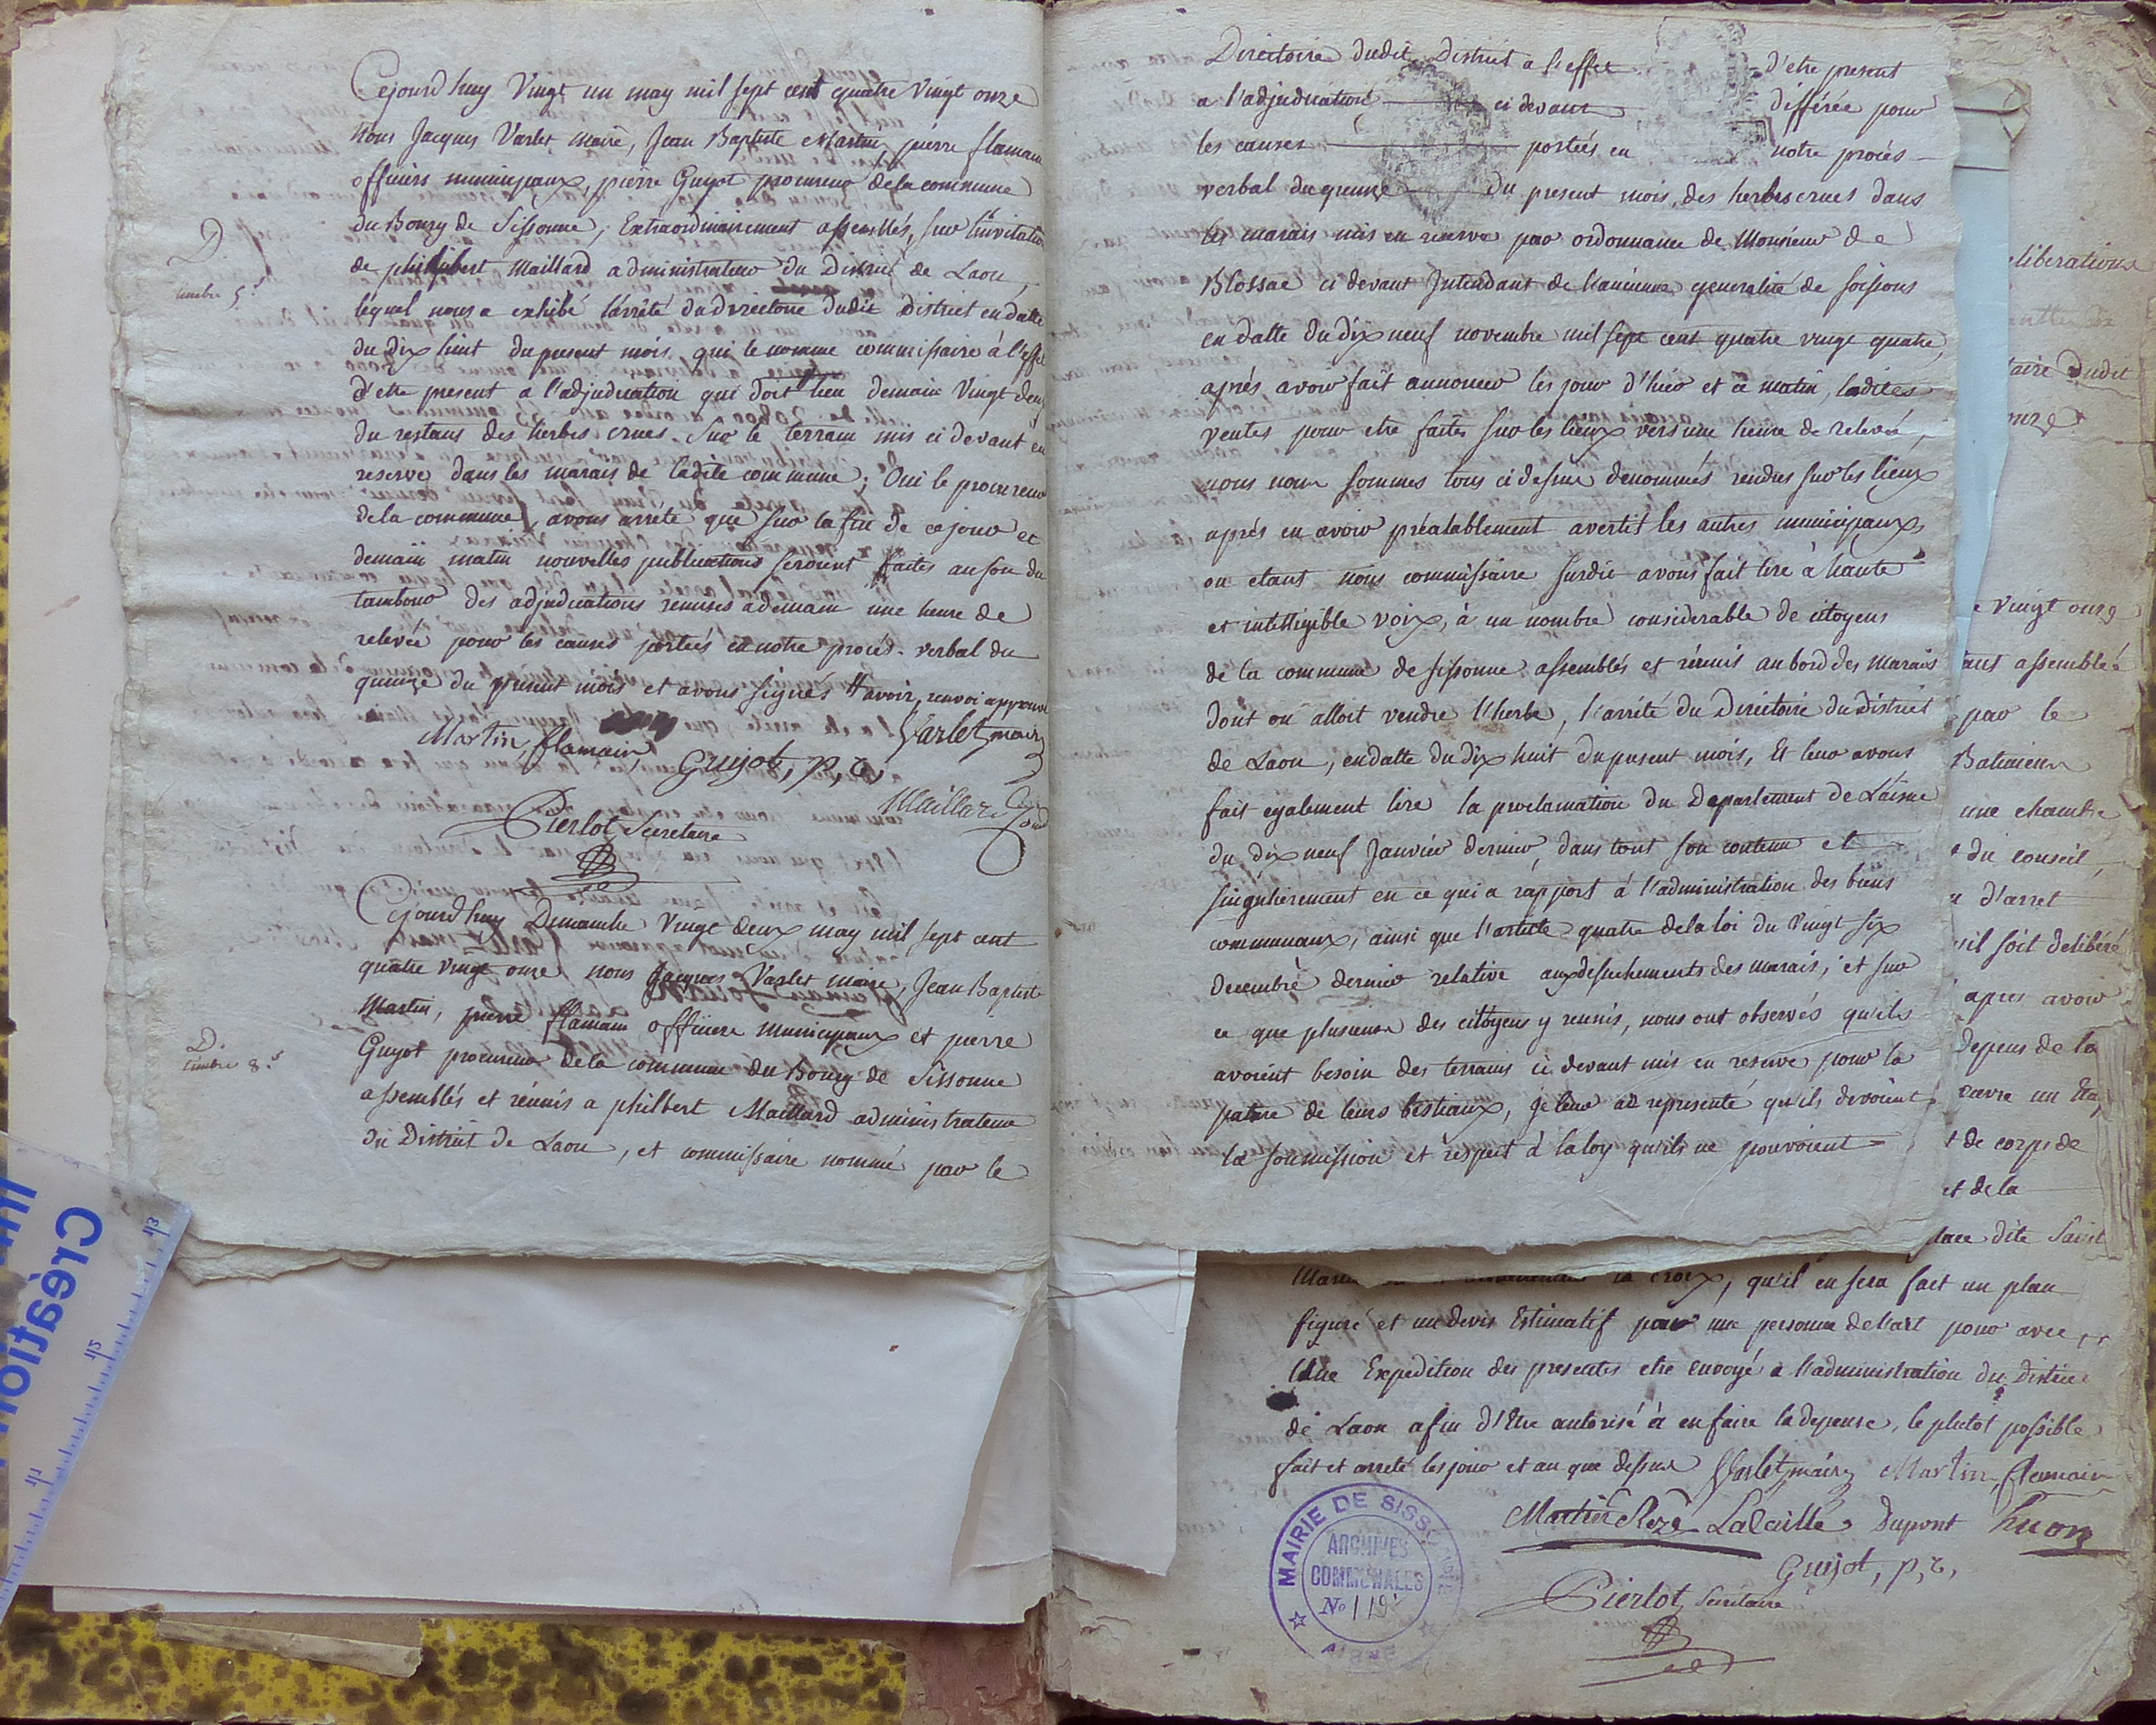 Cejourd'huy Vingt un may mil sept cent quatre vingt onze
nous Jacques Varlet maire, Jean Baptiste Martin, pierre flamain
officiers municipaux, pierre Guyot procureur de la commune
du Bourg de Sissonne, Extraordinairement assemblés, sur l'invitation
de philbert Maillard administrateur du District de Laon,
lequel nous a exhibé l'arrêté du directoire dudit District en datte
du dix huit du present mois qui le nomme commissaire à l'effet
d'etre present a l'adjudication qui doit lieu demain Vingt deux
du restans des herbes crues sur le terrain mis ci devant en
reserve dans les marais de ladite commune; Oui le procureur
de la commune, avons arrêté que sur la fin de ce jour et
demain matin nouvelles publications seroient faites au son du
tambour des adjudications remises a demain une heure de
relevée pour les causes portées en notre procès-verbal du
quinze du present mois et avons signés # avoir, renvoi approuvé
Martin, flamain, Varlet, maire
Guyot, p, c,
Maillard
Pierlot, Secretaire
D.
timbre 5.s
Cejourd'huy Dimanche vingt deux may mil sept cent
quatre vingt onze nous Jacques Varlet maire, Jean Baptiste
Martin, pierre flamain officiers municipaux et pierre
Guyot procureur de la commune du Bourg de Sissonne
assemblés et réunis a philbert Maillard administrateur
du District de Laon, et commissaire nommé par le
D.
timbre 8.s
Directoire dudit District a l'effet d'etre present
a l'adjudication ci devant différée pour
les causes portées en notre procès
verbal du quinze du present mois, des herbes crues dans
les marais mis en reserve par ordonnance de Monsieur de
Blossac ci devant Intendant de l'ancienne generalité de soissons
en datte du dix neuf novembre mil sept cent quatre vingt quatre,
après avoir fait annoncer les jour d'hier et ce matin, ladites
ventes pour etre faites sur les lieux vers une heure de relevée,
nous nous sommes tous ci dessus denommés rendus sur les lieux
après en avoir préalablement avertit les autres municipaux,
ou etans nous commissaire susdit avons fait lire à haute
et intelligible voix, à un nombre considerable de citoyens
de la commune de sissonne assemblés et réunis au bord des marais
dont on alloit vendre l'herbe, l'arrêté du Directoire du District
de Laon, en datte du dix huit du present mois, Et leur avons
fait egalement lire la proclamation du Departement de L'aisne
du dix neuf Janvier dernier, dans tout son contenu et
singulierement en ce qui a rapport à l'administration des biens
communaux, ainsi que l'article quatre de la loi du vingt six
decembre dernier relative aux dessechements des marais, et sur
ce que plusieurs des citoyens y reunis, nous ont observés qu'ils
avoient besoin des terrains ci devant mis en reserve pour la
pature de leurs bestiaux, je leur ai representé qu'ils devoient
la soumission et respect à la loy qu'ils ne pouvoient
eliberations
taire dudit
onze
e vingt onze
tant assemblée
par le
une chambre
du conseil,
d'arret
'il soit delibéré
apres avoir
depens de la
t de corps de
et de la
place dite Saint
la croix, qu'il en sera fait un plan
figuré et un devis Estimatif par une personne de l'art pour avec
Une Expedition des presentes etre envoyé a l'administration du District
de Laon afin d'Etre autorisé à en faire la depense, le plutot possible
fait et arreté les jour et an que dessus Varlet, maire Martin, flamain
Martin Rozé LaCaille Dupont huon
Guyot, p, c,
Pierlot, Secretaire
MAIRIE DE SISSONNE
ARCHIVES
COMMUNALES
No
AISNE
Création
43
42
41